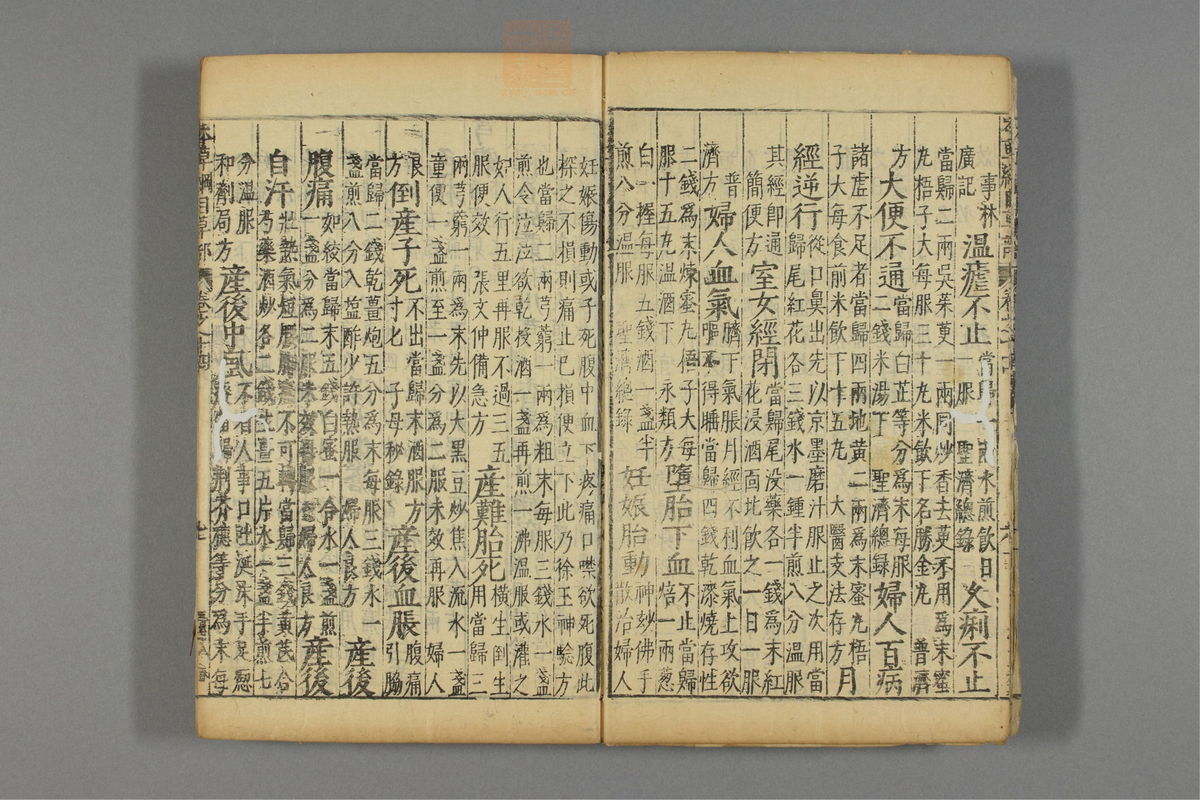 事林
廣記 温瘧不止 當歸一兩水煎飲日一服 聖濟總錄 久痢不止
當歸二兩吳茱萸一兩同炒香去萸不用爲末蜜
丸梧子大每服三十丸米飲下名勝金丸 普濟
方 大便不通 當歸白芷等分爲末每服二錢米湯下 聖濟總錄 婦人百病
諸虛不足者當歸四兩地黃二兩爲末蜜丸梧
子大每食前米飲下十五丸 太醫支法存方 月
經逆行 從口鼻出先以京墨磨汁服止之次用當歸尾紅花各三錢水一鍾半煎八分温服
其經卽通 簡便方 室女經閉 當歸尾没藥各一錢爲末紅花浸酒面北飲之一日一服
普濟方 婦人血氣 臍下氣脹月經不利血氣上攻欲嘔不得睡當歸四錢乾漆燒存性
二錢爲末煉蜜丸梧子大每服十五丸温酒下 永類方 墮胎下血 不止當歸焙一兩葱
白一握每服五錢酒一盞半煎八分温服 聖濟總錄 妊娠胎動 神妙佛手散治婦人
妊娠傷動或子死腹中血下疼痛口噤欲死服此
探之不損則痛止已損便立下此乃徐王神驗方
也當歸二兩芎藭一兩爲粗末每服三錢水一盞
煎令泣泣欲乾投酒一盞再煎一沸温服或灌之
如人行五里再服不過三五服便效 張文仲備急方 產難胎死 橫生倒生用當歸三
兩芎藭一兩爲末先以大黑豆炒焦入流水一盞
童便一盞煎至一盞分爲二服未效再服 婦人
良方 倒產子死 不出當歸末酒服方寸匕 子母秘錄 產後血脹 腹痛引脇
當歸二錢乾薑炮五分爲末每服三錢水一
盞煎八分入鹽酢少許熱服 婦人良方 產後
腹痛 如絞當歸末五錢白蜜一合水一盞煎一盞分爲二服未效再服 婦人良方 產後
自汗 壯熱氣短腰脚痛不可轉當歸三錢黃芪合芍藥酒炒各二錢生薑五片水一盞半煎七
分温服 和劑局方 產後中風 不省人事口吐涎沫手足瘈瘲當歸荆芥穗等分爲末每